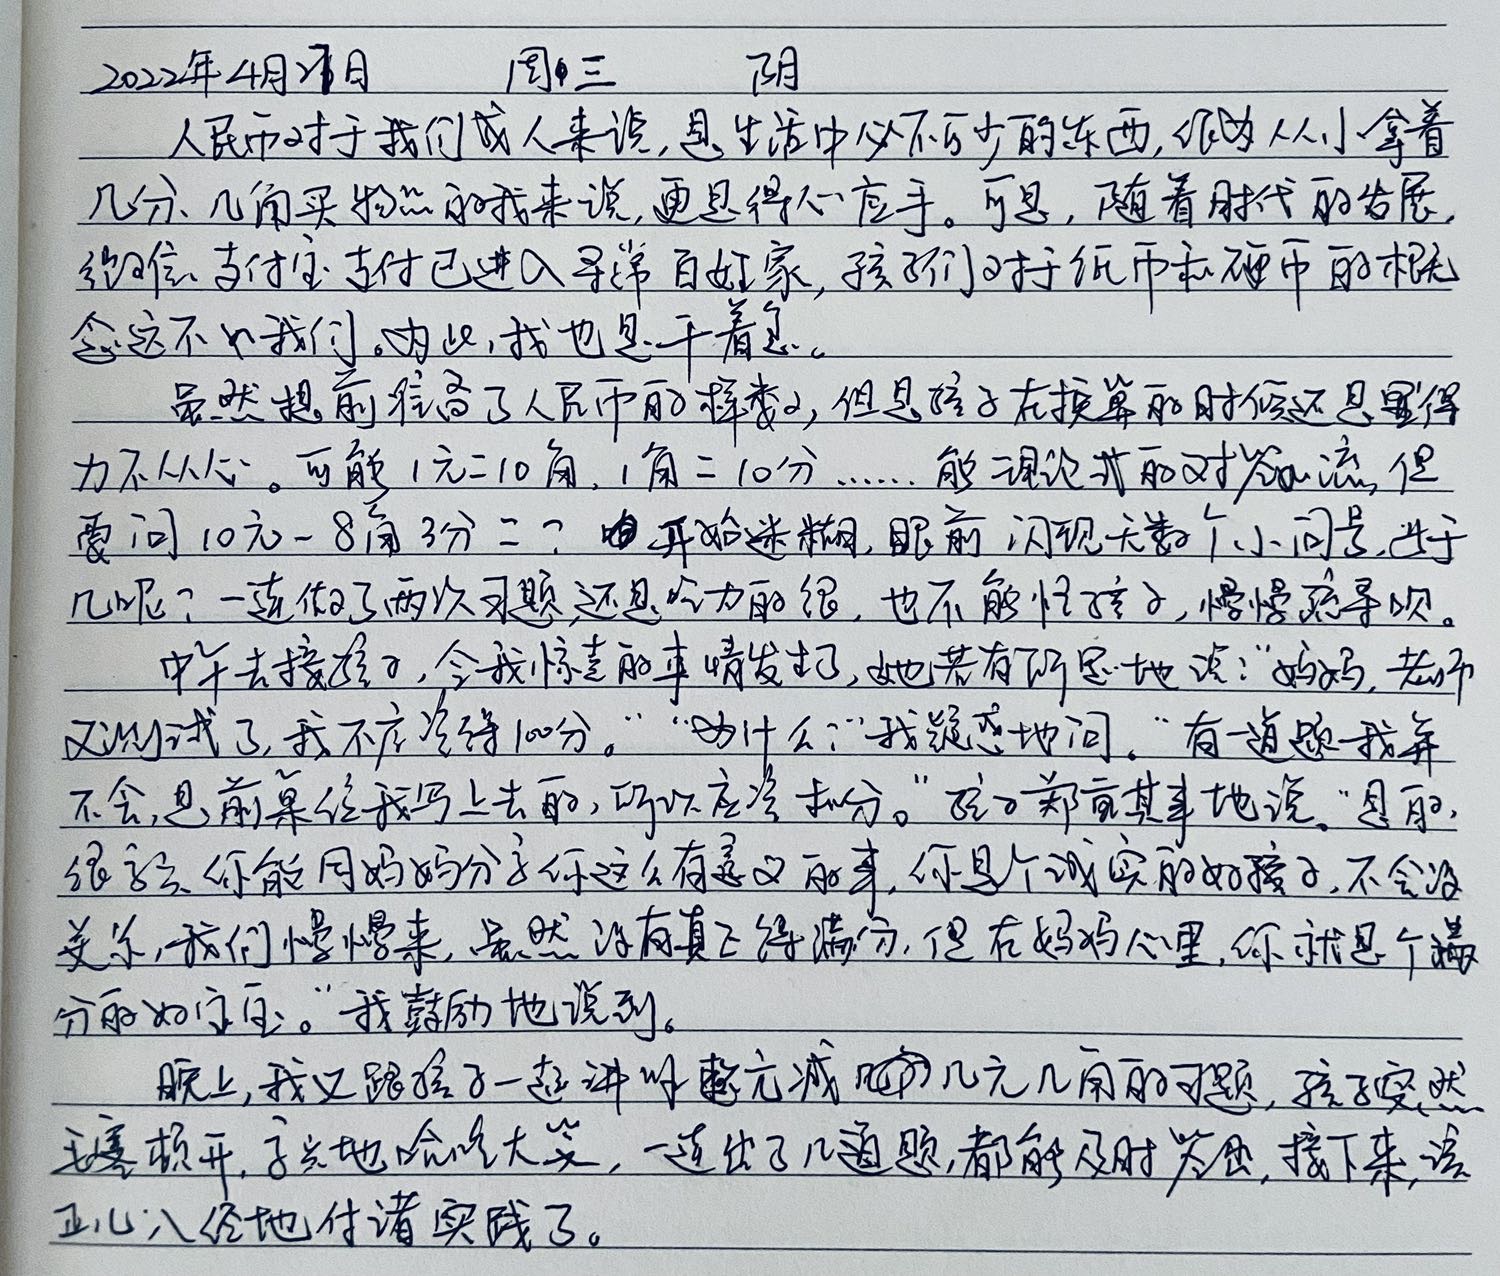 2022年4月27日 周三 阴
人民币对于我们成人来说,是生活中必不可少的东西,作为从小拿着
几分、几角买物品的我来说,更是得心应手。可是,随着时代的发展,
微信、支付宝支付已进入寻常百姓家,孩子们对于纸币和硬币的概
念远不如我们。为此,我也是干着急。
虽然提前准备了人民币的样教具,但是孩子在换算的时候还是显得
力不从心。可能1元=10角,1角=10分……能理论式的对答如流,但
要问10元-8角3分=?开始迷糊,眼前闪现无数个小问号,等于
几呢?一连做了两次习题,还是吃力的很,也不能怪孩子,慢慢疏导呗。
中午去接孩子,令我惊喜的事情发生了,她若有所思地说:“妈妈,老师
又测试了,我不应该得100分。”“为什么?”我疑惑地问。“有一道题我算
不会,是前桌给我写上去的,所以应该扣分。”孩子郑重其事地说。“是的,
很高兴你能同妈妈分享你这么有意义的事,你是个诚实的好孩子,不会没
关系,我们慢慢来,虽然没有真正得满分,但在妈妈心里,你就是个满
分的好宝宝。”我鼓励地说到。
晚上,我又跟孩子一起讲解整元减几元几角的习题,孩子突然
茅塞顿开,高兴地哈哈大笑,一连出了几道题,都能及时答出,接下来,该
正儿八经地付诸实践了。